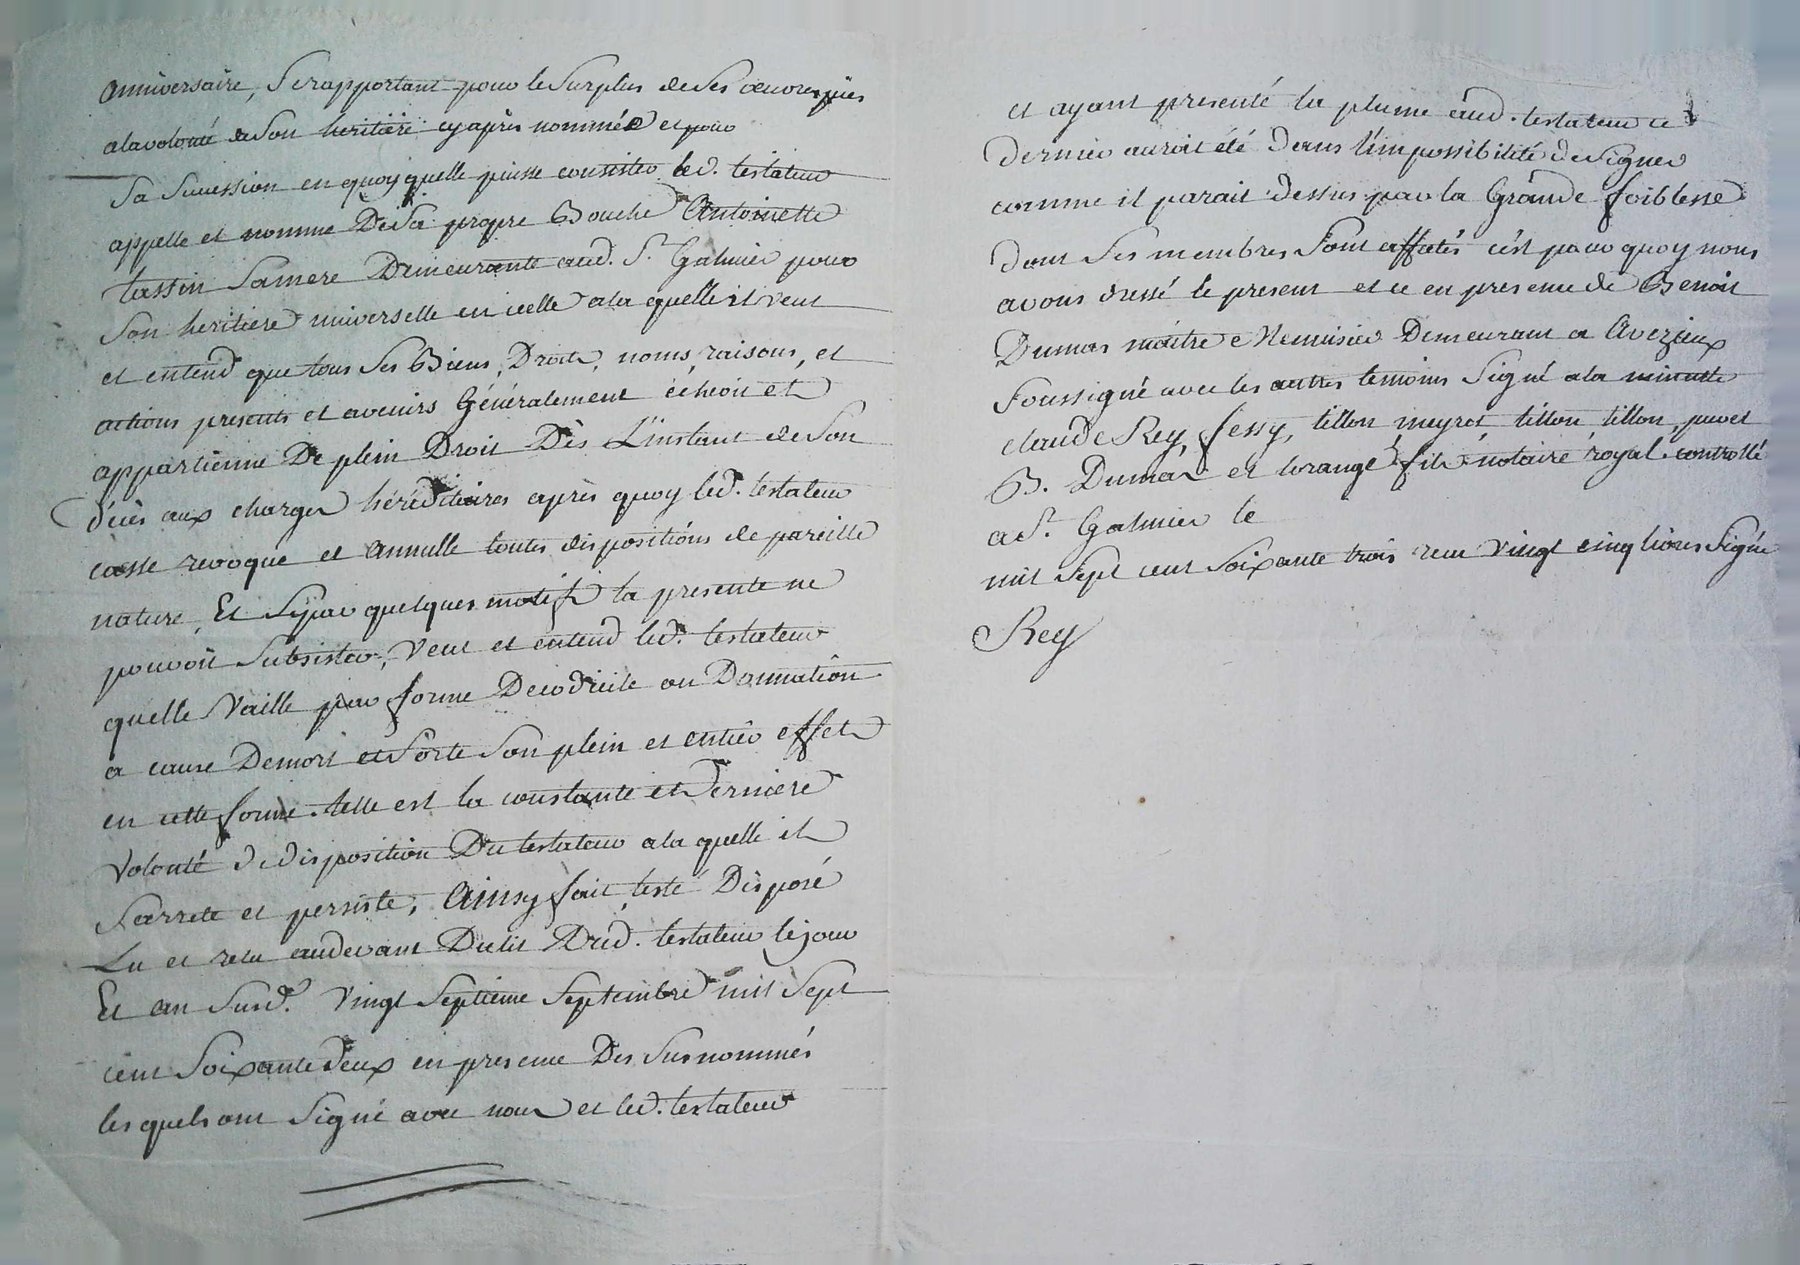 anniversaire, Serapportant pour le Surplus de Ses œuvres pies
alavolonté de Son heritiere cyaprès nommée et pour
Sa Succession en quoy quelle puisse consister led. testateur
appelle et nomme De Sa propre Bouche Antoinette
tassin Samere Demeurante aud. St. Galmier pour
Son heritiere universelle en icelle ala quelle il veut
et entend que tous Ses Biens, Droits, noms, raisons, et
actions presents et avenirs Généralement échoit et
appartienne De plein Droit Dès L'instant de Son
décès aux charges héréditaires après quoy led. testateur
casse revoque et annulle toutes dispositions de pareille
nature, Et Sipar quelques motifs la presente ne
pouvoit Subsister, Veut et entend led. testateur
quelle Vaille par forme Decodicile ou Donnation
a cause Demort et Sorte Son plein et entier effet
en cette forme. telle est la constante et derniere
Volonté de disposition Du testateur ala quelle il
Sarrete et persiste, Ainsy fait, testé Disposé
Lu et relu audevant Dulit Dud. testateur lejour
Et an Susd. Vingt Septieme Septembre mil Sept
cent Soixante deux en presence Des Susnommés
les quels ont Signé avec nous et led. testateur
et ayant presenté la plume aud. testateur ce
dernier auroit été dans l'impossibilité de Signer
comme il parait dessus par la Grande foiblesse
dont Ses membres Sont affatés c'est pour quoy nous
avons dressé le present et ce en presence de Benoit
Dumas maître Menuisier Demeurant a Avezieux
Soussigné avec les autres temoins Signé ala minutte
claude Rey, fessy, tillon, meyrot, tillon, tillon, puvel
B. Dumas et torange fils notaire royal. controllé
a St. Galmier le
mil Sept cent Soixante trois reçu Vingt cinq livres Signé
Rey